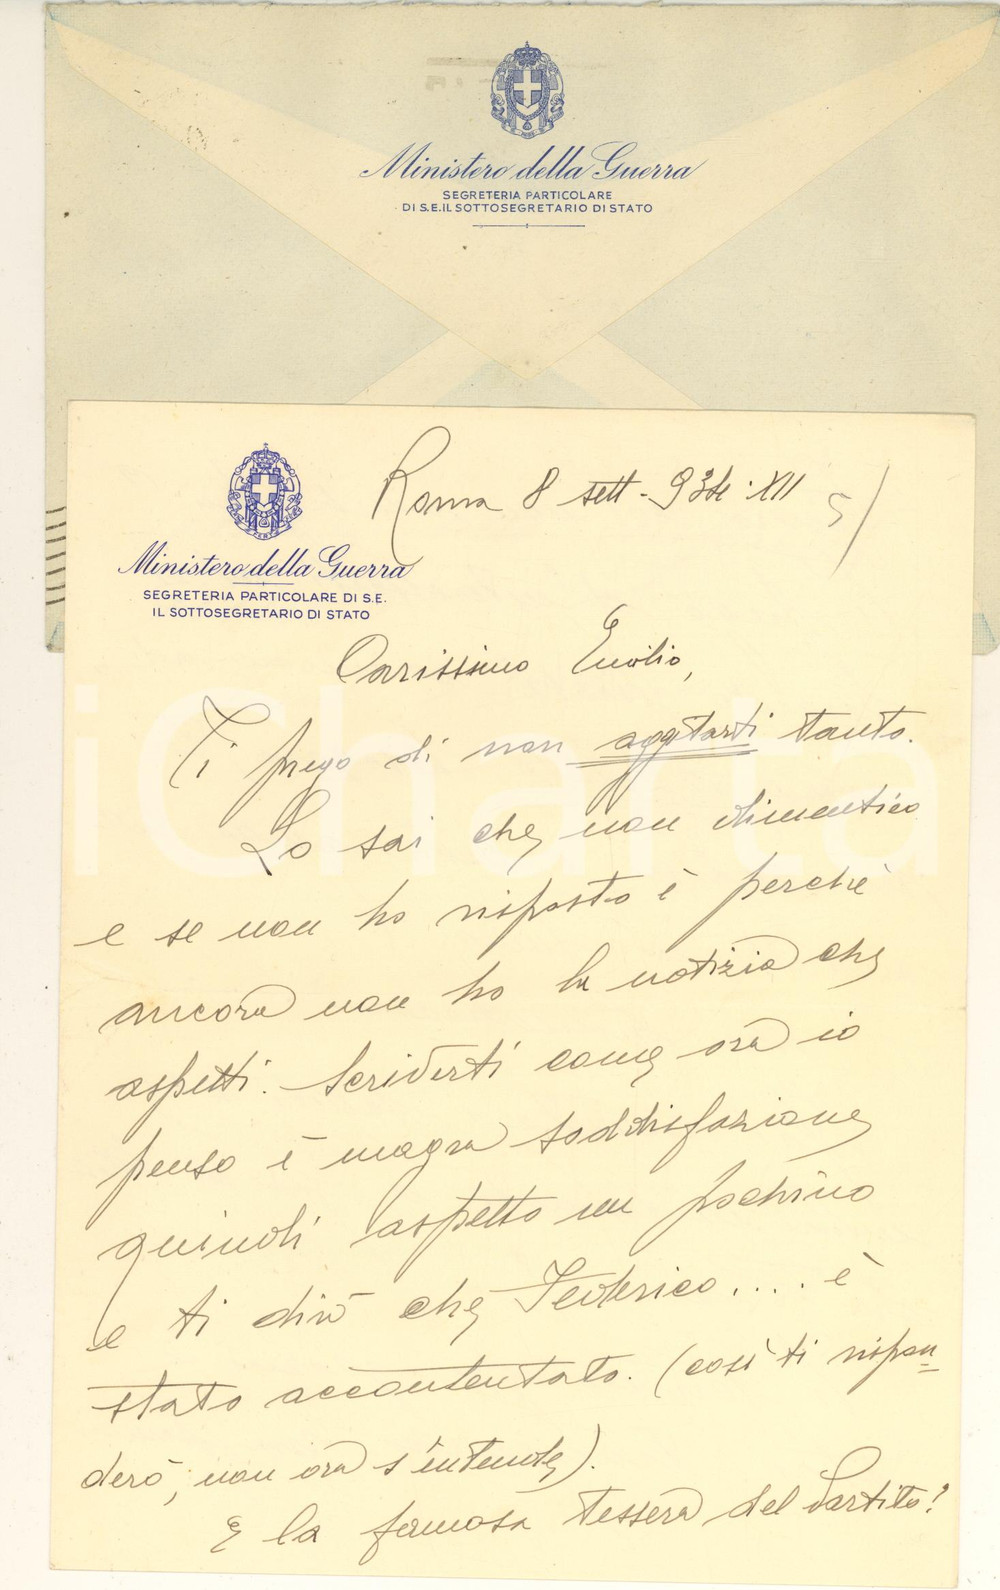 Ministero della Guerra
SEGRETERIA PARTICOLARE
DI S.E. IL SOTTOSEGRETARIO DI STATO
Roma 8 sett - 934 · XII
Ministero della Guerra
SEGRETERIA PARTICOLARE DI S.E.
IL SOTTOSEGRETARIO DI STATO
Carissimo Emilio,
Ti prego di non aggitarti tanto.
Lo sai che non dimentico
e se non ho risposto è perchè
ancora non ho la notizia che
aspetti. Scriverti come ora io
penso è magra soddisfazione
quindi aspetto un pochino
e ti dirò che Federico.... è
stato accontentato. (così ti rispon=
derò, non ora s'intende).
E la famosa tessera del Partito?
iCharta